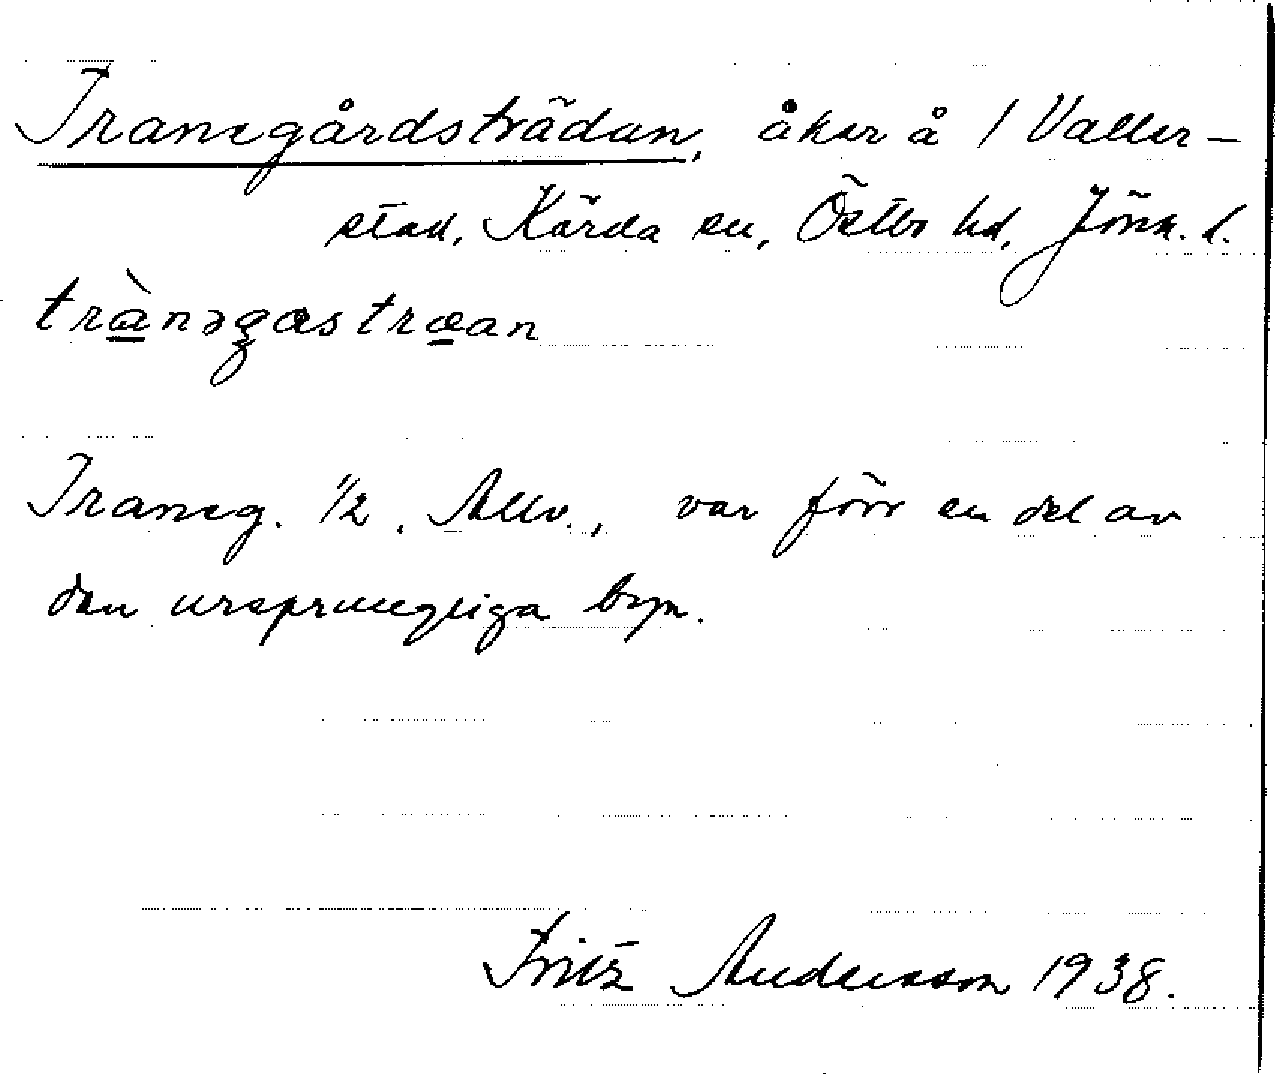 Tranegårdsträdan, åker å 1 Valler-
stad, Kärda sn, Östbo hd, Jönk. l.
trànəgasträan
Traneg. 1/2, Allv., var förr en del av
den ursprungliga byn.
Fritz Andersson 1938.